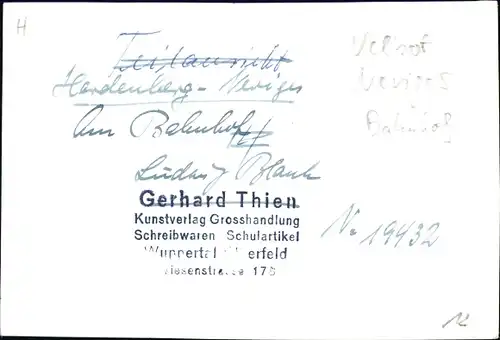 H
Teilansicht
Hardenberg-Neviges
Am Bahnhof
Ludwig Blank
Velbert
Neviges
Bahnhof
Gerhard Thien
Kunstverlag Grosshandlung
Schreibwaren Schulartikel
Wuppertal Elberfeld
Wiesenstrasse 176
No 19432